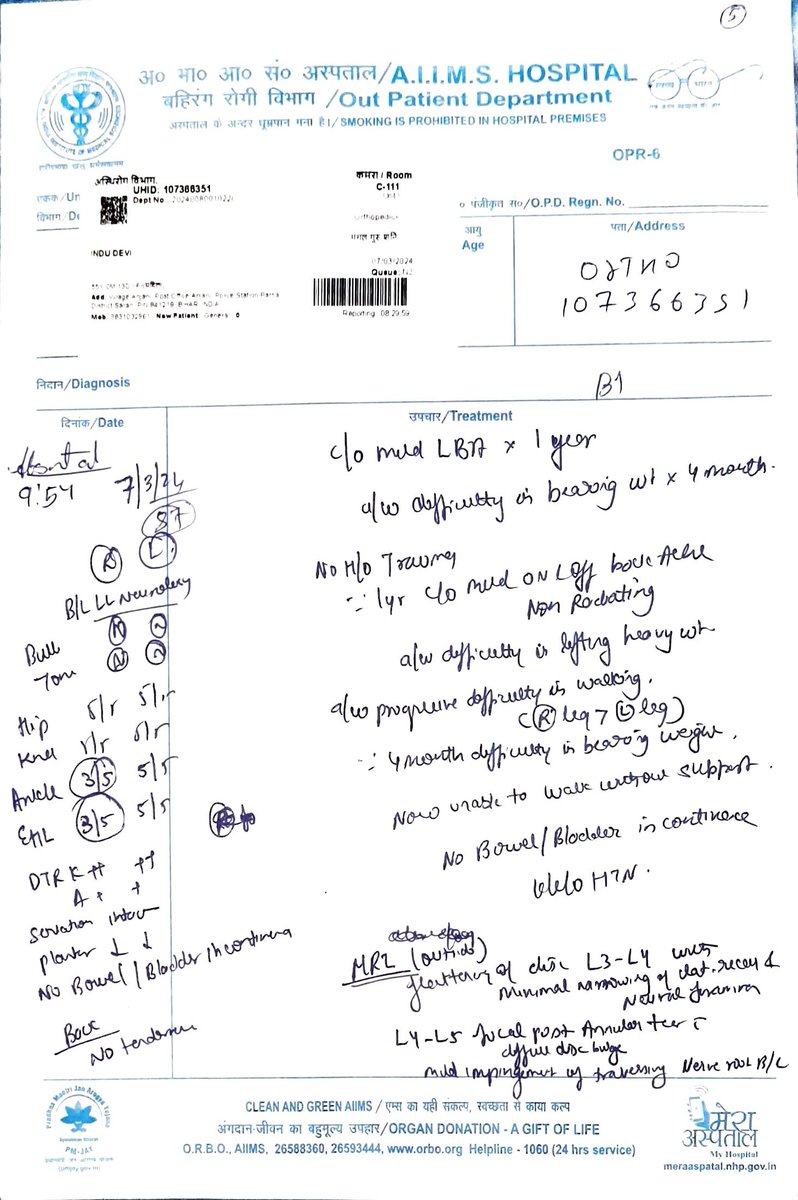 5
अ० भा० आ० सं० अस्पताल/A.I.I.M.S. HOSPITAL
बहिरंग रोगी विभाग /Out Patient Department
अस्पताल के अन्दर धूम्रपान मना है।/SMOKING IS PROHIBITED IN HOSPITAL PREMISES
OPR-6
अस्थिरोग विभाग
UHID: 107366351
Dept No
कमरा / Room
C-111
Orthopedics
एकक/Un
विभाग/De
० पंजीकृत स०/O.P.D. Regn. No.
INDU DEVI
07/03/2024
Queue
Reporting 08:29:59
New Patient General 0
आयु
Age
पता/Address
ORTHO
107366351
निदान/Diagnosis
B1
दिनांक/Date
उपचार/Treatment
9:54
7/3/24
57
R L
B/L LL Neurology
Bulk N N
Tone N N
Hip 5/5 5/5
Knee 5/5 5/5
Ankle 3/5 5/5
EHL 3/5 5/5
DTR K ++ ++
A + +
Sensation intact
Plantar ↓ ↓
No Bowel/Bladder incontinence
Back
No tenderness
c/o mild LBA x 1 year
a/w difficulty in bearing wt x 4 month.
No H/O Trauma
∵ 1yr c/o mild on & off back ache
Non Radiating
a/w difficulty in lifting heavy wt
a/w progressive difficulty in walking.
(R leg > L leg)
∵ 4 month difficulty in bearing weight.
Now unable to walk without support.
No Bowel/Bladder incontinence
k/c/o HTN.
MRI (outside)
flattening of disc L3-L4 with
minimal narrowing of lat. recess &
Neural foramina
L4-L5 focal post Annular tear c̄
diffuse disc bulge
mild impingement of traversing Nerve root B/L
Pradhan Mantri Jan Arogya Yojana
PM-JAY
CLEAN AND GREEN AIIMS / एम्स का यही संकल्प, स्वच्छता से काया कल्प
अंगदान-जीवन का बहुमूल्य उपहार/ORGAN DONATION - A GIFT OF LIFE
O.R.B.O., AIIMS, 26588360, 26593444, www.orbo.org Helpline - 1060 (24 hrs service)
मेरा
अस्पताल
My Hospital
meraaspatal.nhp.gov.in